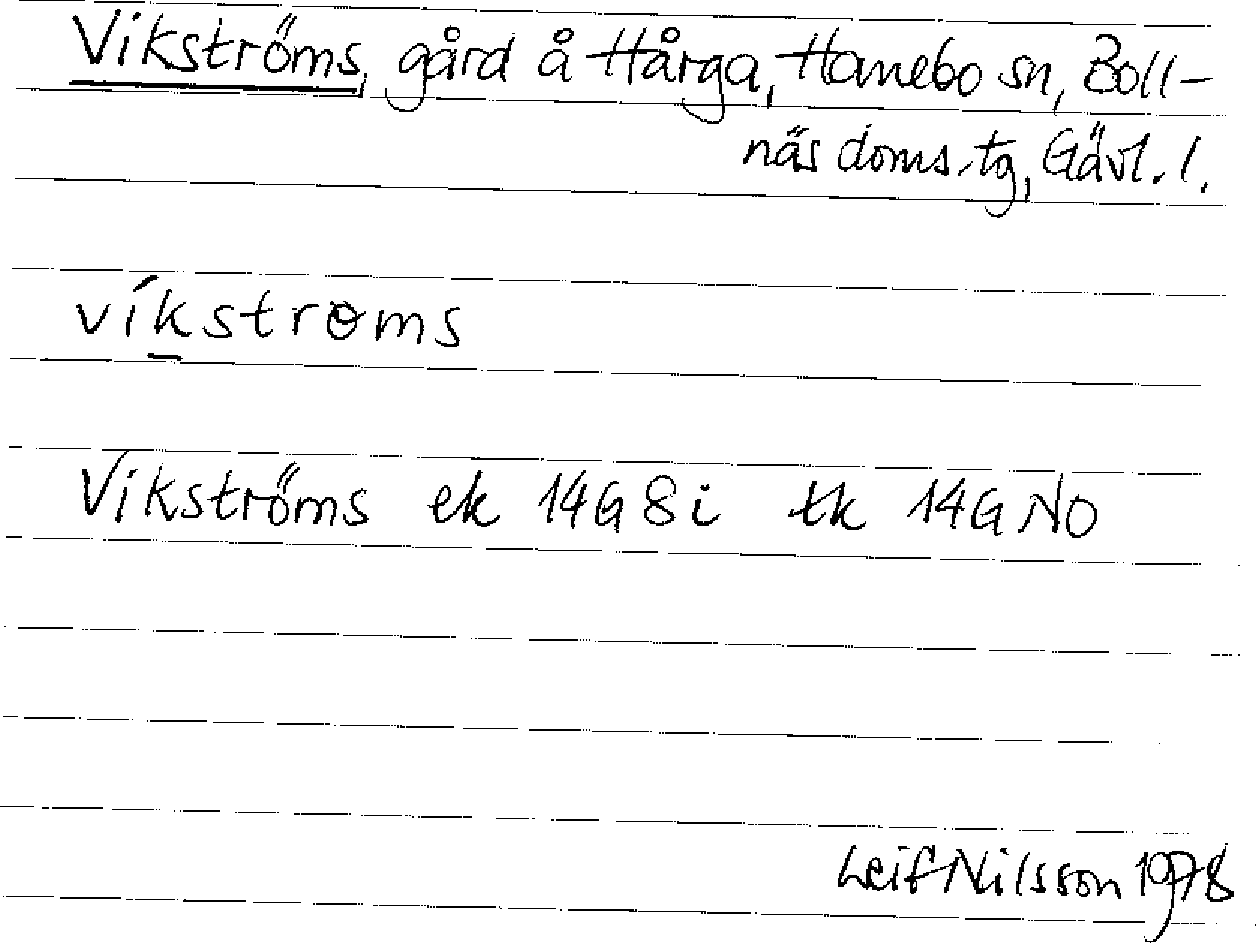 Vikströms, gård å Hårga, Hanebo sn, Boll-
näs doms.tg, Gävl. l.
víkstrɵms
Vikströms ek 14G 8i tk 14G NO
Leif Nilsson 1978